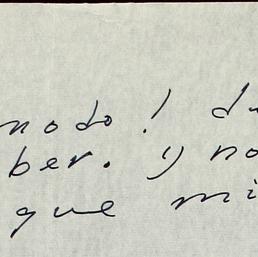 nodo! du
ber. y no
que mi